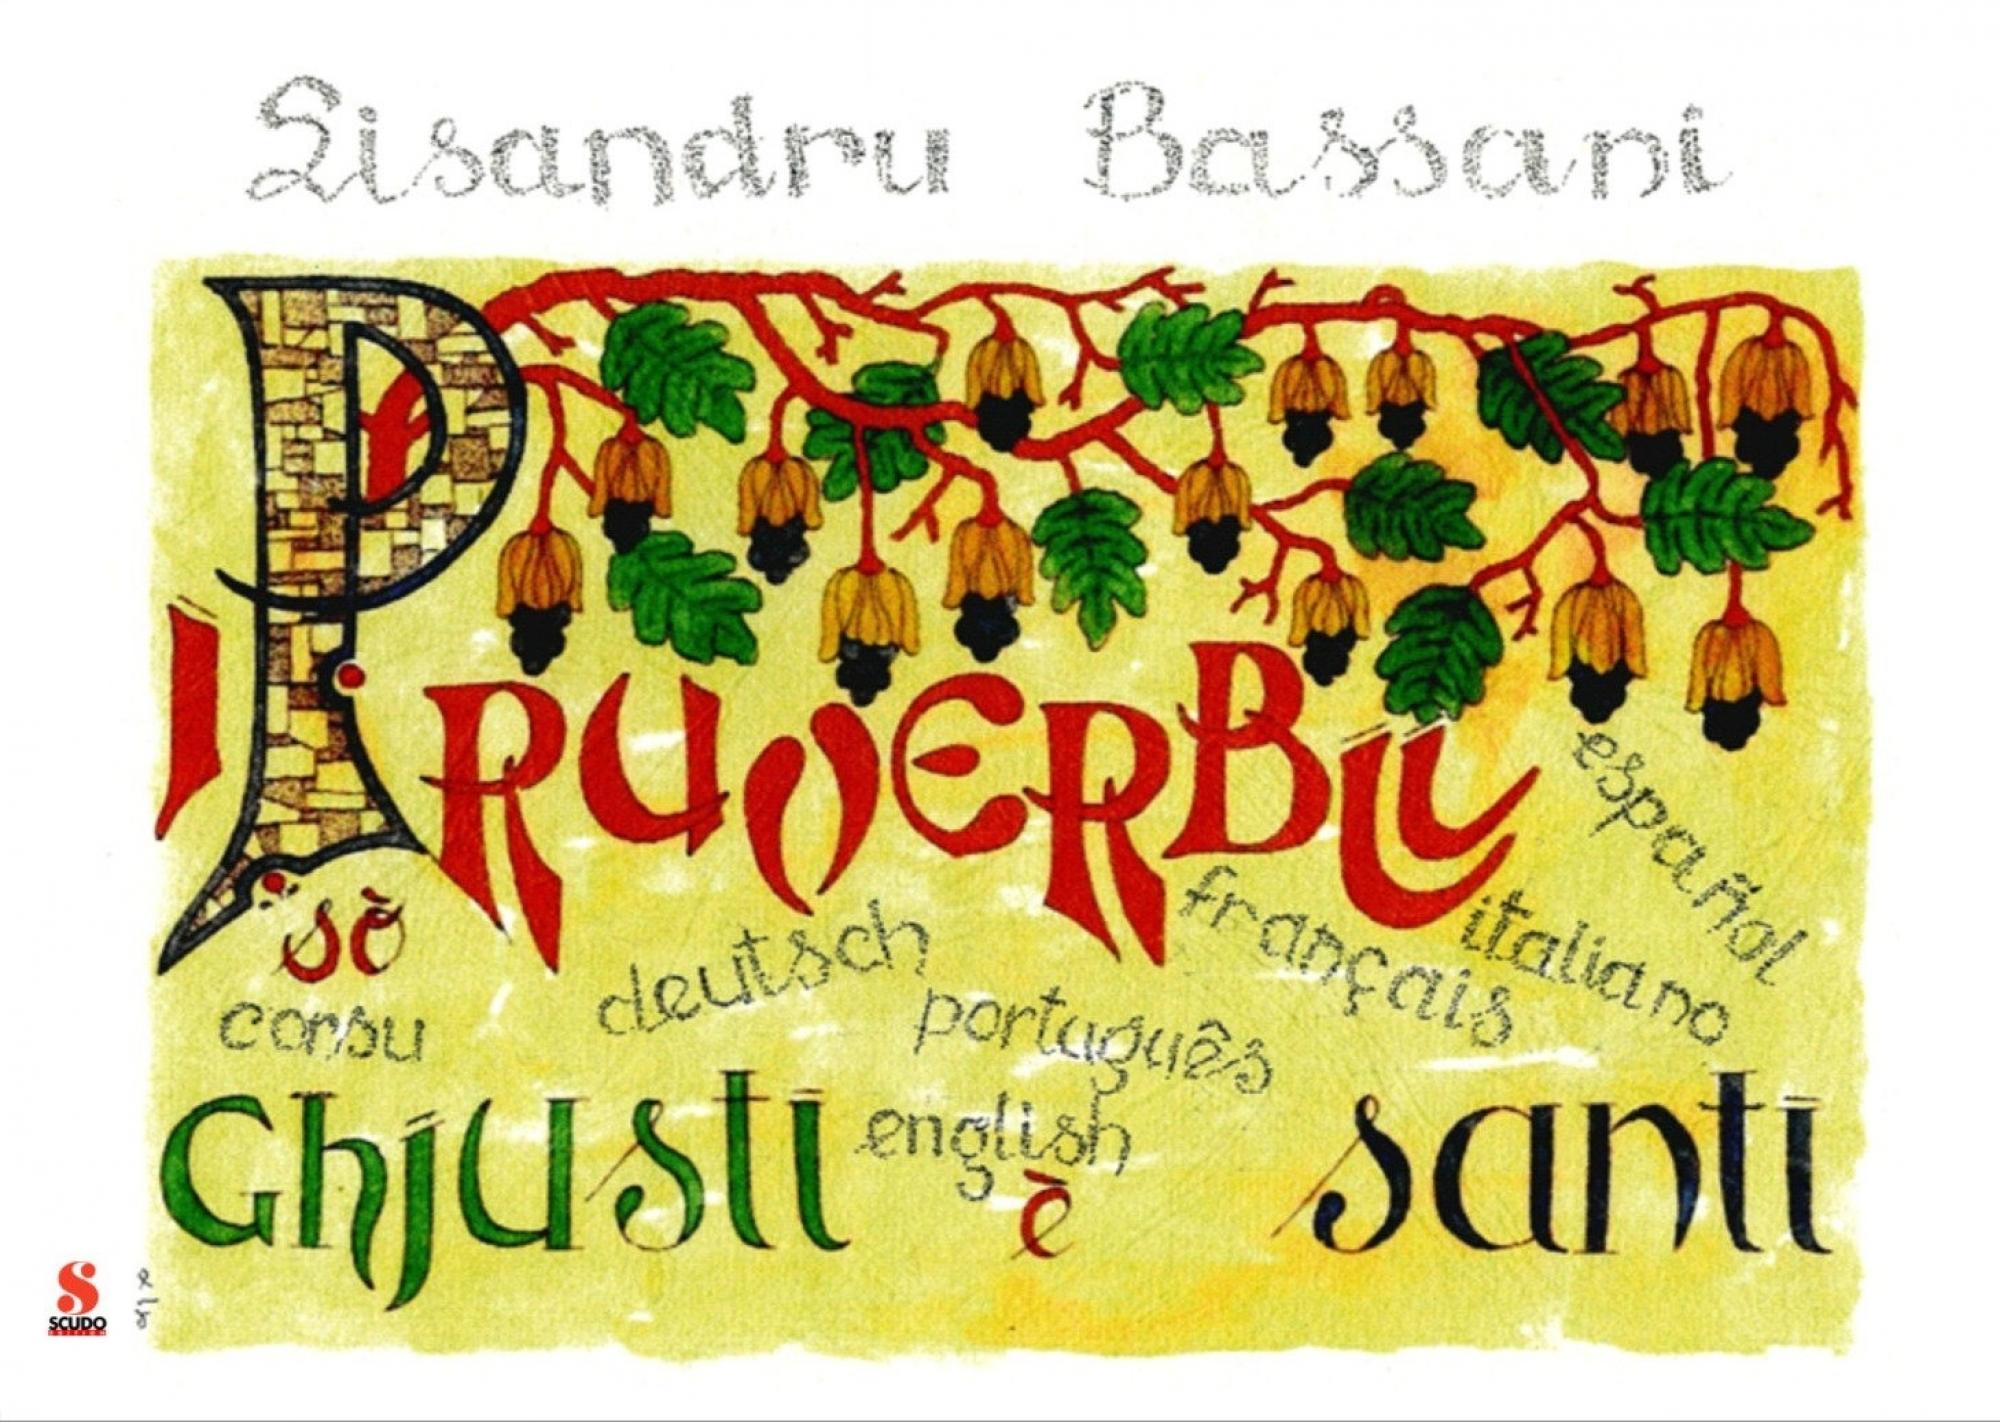 Lisandru Bassani
I PRUVERBII
sò
español
français
italiano
deutsch
corsu
português
Ghjusti
english
è
santi
S
SCUDO
EDITION